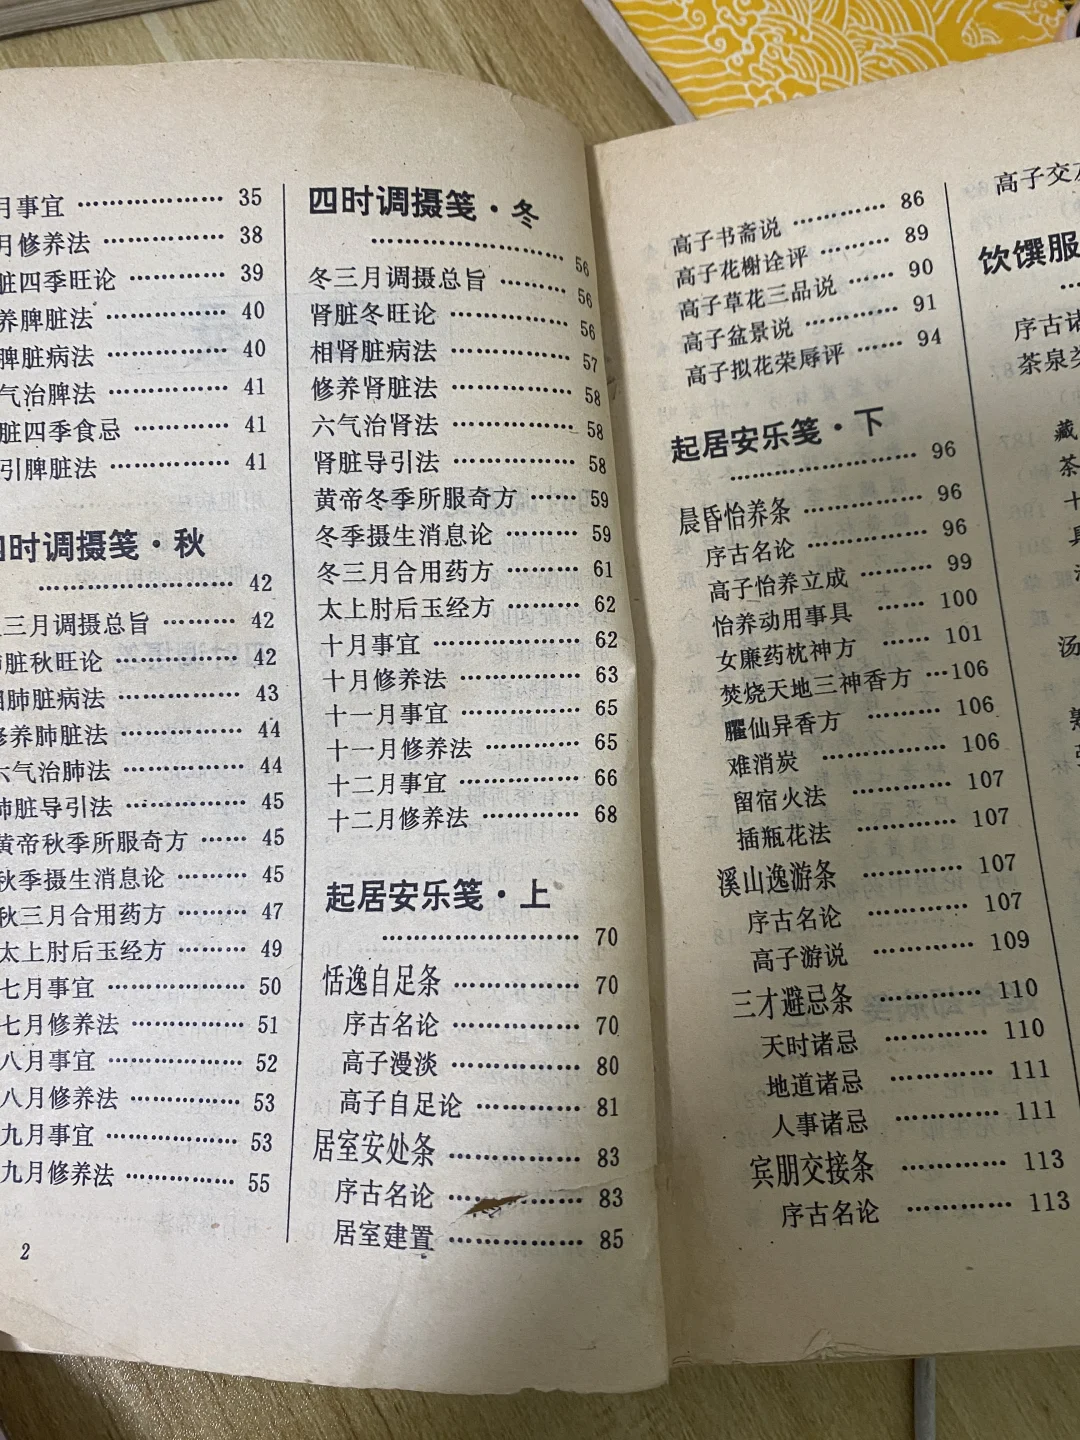 月事宜 ………………… 35
月修养法 …………… 38
脏四季旺论 ………… 39
养脾脏法 …………… 40
脾脏病法 …………… 40
气治脾法 …………… 41
脏四季食忌 ………… 41
引脾脏法 …………… 41
时调摄笺·秋
………………………… 42
三月调摄总旨 ……… 42
脏秋旺论 …………… 42
肺脏病法 …………… 43
修养肺脏法 ………… 44
六气治肺法 ………… 44
肺脏导引法 ………… 45
黄帝秋季所服奇方 …… 45
秋季摄生消息论 …… 45
秋三月合用药方 …… 47
太上肘后玉经方 …… 49
七月事宜 …………… 50
七月修养法 ………… 51
八月事宜 …………… 52
八月修养法 ………… 53
九月事宜 …………… 53
九月修养法 ………… 55
2
四时调摄笺·冬
………………………… 56
冬三月调摄总旨 …… 56
肾脏冬旺论 ………… 56
相肾脏病法 ………… 57
修养肾脏法 ………… 58
六气治肾法 ………… 58
肾脏导引法 ………… 58
黄帝冬季所服奇方 …… 59
冬季摄生消息论 …… 59
冬三月合用药方 …… 61
太上肘后玉经方 …… 62
十月事宜 …………… 62
十月修养法 ………… 63
十一月事宜 ………… 65
十一月修养法 ……… 65
十二月事宜 ………… 66
十二月修养法 ……… 68
起居安乐笺·上
………………………… 70
恬逸自足条 ………… 70
序古名论 …………… 70
高子漫淡 …………… 80
高子自足论 ………… 81
居室安处条 ………… 83
序古名论 …………… 83
居室建置 …………… 85
高子书斋说 ………… 86
高子花榭诠评 ……… 89
高子草花三品说 …… 90
高子盆景说 ………… 91
高子拟花荣辱评 …… 94
起居安乐笺·下
………………………… 96
晨昏怡养条 ………… 96
序古名论 …………… 96
高子怡养立成 ……… 99
怡养动用事具 …… 100
女廉药枕神方 …… 101
焚烧天地三神香方 …106
臞仙异香方 ……… 106
难消炭 …………… 106
留宿火法 ………… 107
插瓶花法 ………… 107
溪山逸游条 ……… 107
序古名论 ………… 107
高子游说 ………… 109
三才避忌条 ……… 110
天时诸忌 ………… 110
地道诸忌 ………… 111
人事诸忌 ………… 111
宾朋交接条 ……… 113
序古名论 ………… 113
高子交
饮馔服
…
序古诸
茶泉类
藏
茶
十
汤